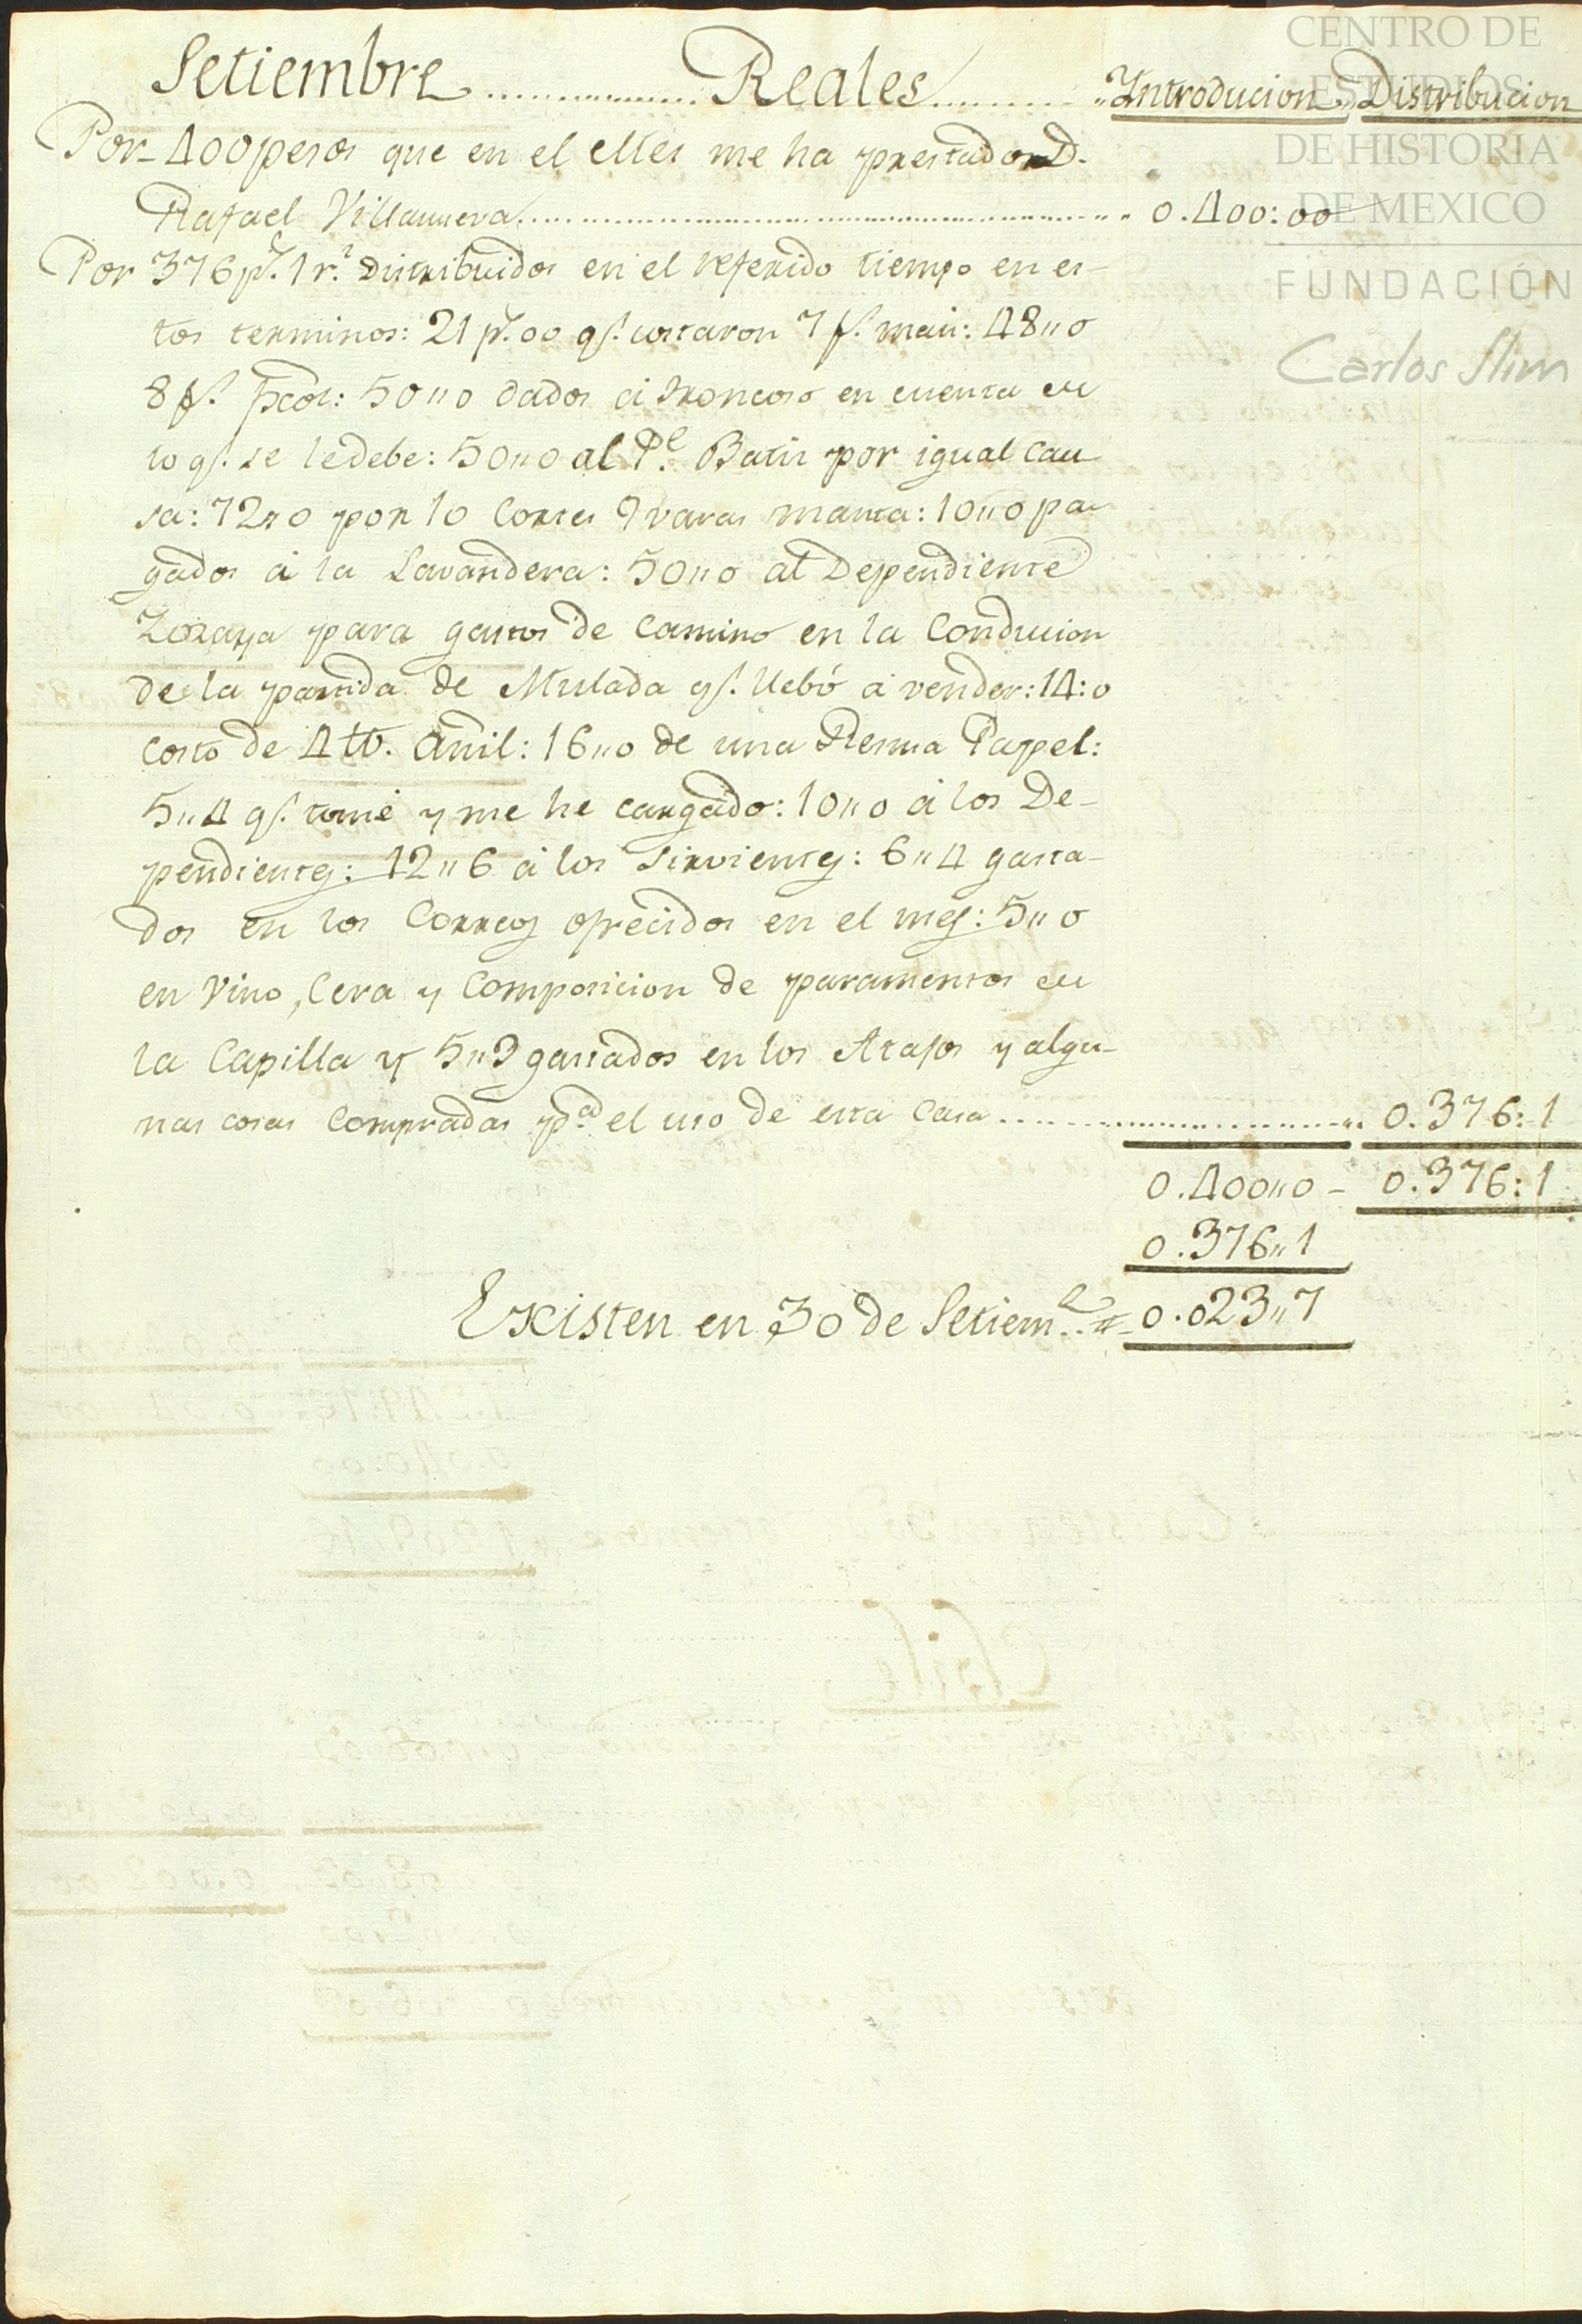 CENTRO DE
ESTUDIOS
DE HISTORIA
DE MEXICO
FUNDACIÓN
Carlos Slim
Setiembre .............. Reales .......... Introducion .. Distribucion
Por 400 pesos que en el Mes me ha prestado D.
Rafael Villanueva .................... 0.400:00
Por 376 ps. 1 rl. distribuidos en el referido tiempo en es-
tos terminos: 21 ps. 00 qs. costaron 7 fs. maiz: 48"0
8 fs. : 50"0 dados á Troncoso en cuenta de
lo qs. se le debe: 50"0 al Pe. Batis por igual cau
sa: 72"0 por 10 Cortes 9 varas manta: 10"0 pa
gados á la Lavandera: 50"0 al Dependiente
Lozaya para gastos de camino en la Conducion
de la partida de Mulada qs. llebó á vender: 14:0
costo de 4 tt. Añil: 16"0 de una Resma Papel:
5"4 qs. tomé y me he cargado: 10"0 á los De-
pendientes: 12"6 á los Sirvientes: 6"4 gasta-
dos en los Correos ofrecidos en el mes: 5"0
en Vino, Cera y Composicion de paramentos de
la Capilla y 5"3 gastados en los Atajos y algu-
nas cosas Compradas pa. el uso de esta Casa .............. 0.376:1
0.400"0 - 0.376:1
0.376"1
Existen en 30 de Setieme. = 0.023"7